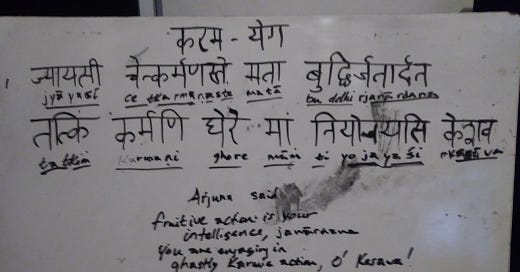 करम - येग
ज्यायसी चेत्कर्मणस्ते मता बुद्धिर्जनार्दन
jyā yasī ce tkarmaṇaste matā bu ddhi rjanārdana
तत्किं कर्मणि घेरे मां नियोजयसि केशव
ta tkiṁ karmani ghore māṁ ni yo ja ya si
Arjuna said
fruitive action is your
intelligence, janārdana
you are engaging in
ghastly Karmic action, O' Kesava!